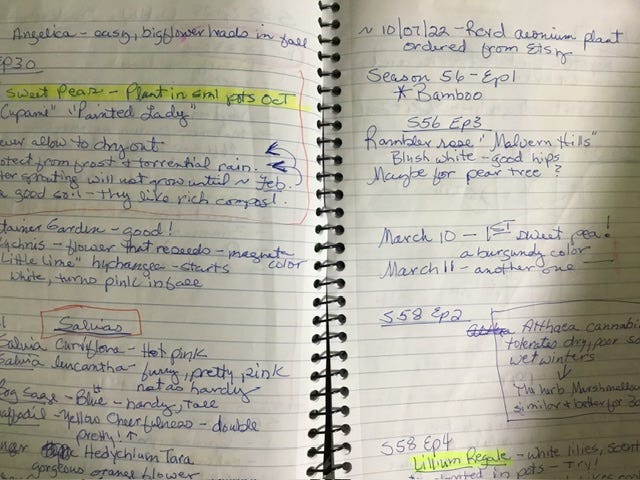 Angelica - easy, big flower heads in fall
EP30
Sweet Peas - Plant in sml pots OCT
"Cupani" "Painted Lady"
never allow to dry out
protect from frost & torrential rain.
after sprouting will not grow until ~ Feb.
good soil - they like rich compost.
Container Garden - good!
Lychnis - flower that reseeds - magenta
color
"Little Lime" hydrangea - starts
white, turns pink in fall
Salvias
Salvia Curviflora - Hot pink
Salvia leucantha - furry, pretty, pink
not as hardy
Bog Sage - Blue - hardy, tall
Daffodil - Yellow Cheerfulness - double
pretty!
Ginger Hedychium Tara
gorgeous orange flower
~ 10/07/22 - Rcvd aeonium plant
ordered from Etsy
Season 56 - Ep1
* Bamboo
S56 Ep3
Rambler rose "Malvern Hills"
Blush white - good hips
Maybe for pear tree ?
March 10 - 1st sweet pea!
a burgundy color
March 11 - another one
S58 Ep2
Althaea cannabi
tolerates dry, poor so
wet winters
The herb Marshmallow
similar & better for
S58 Ep4
Lillium Regale - white lilies, scent
planted in pots - Try!